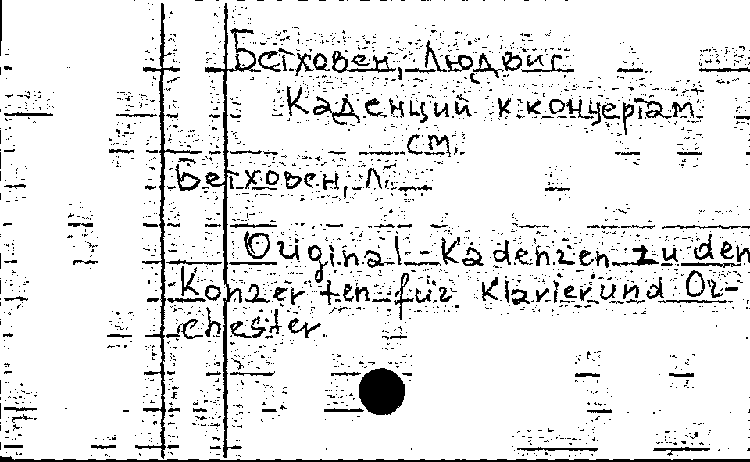 Бетховен, Людвиг
Каденции к концертам
см.
Бетховен, Л.
Original-Kadenzen zu den
Konzerten für Klavier und Or-
chester.